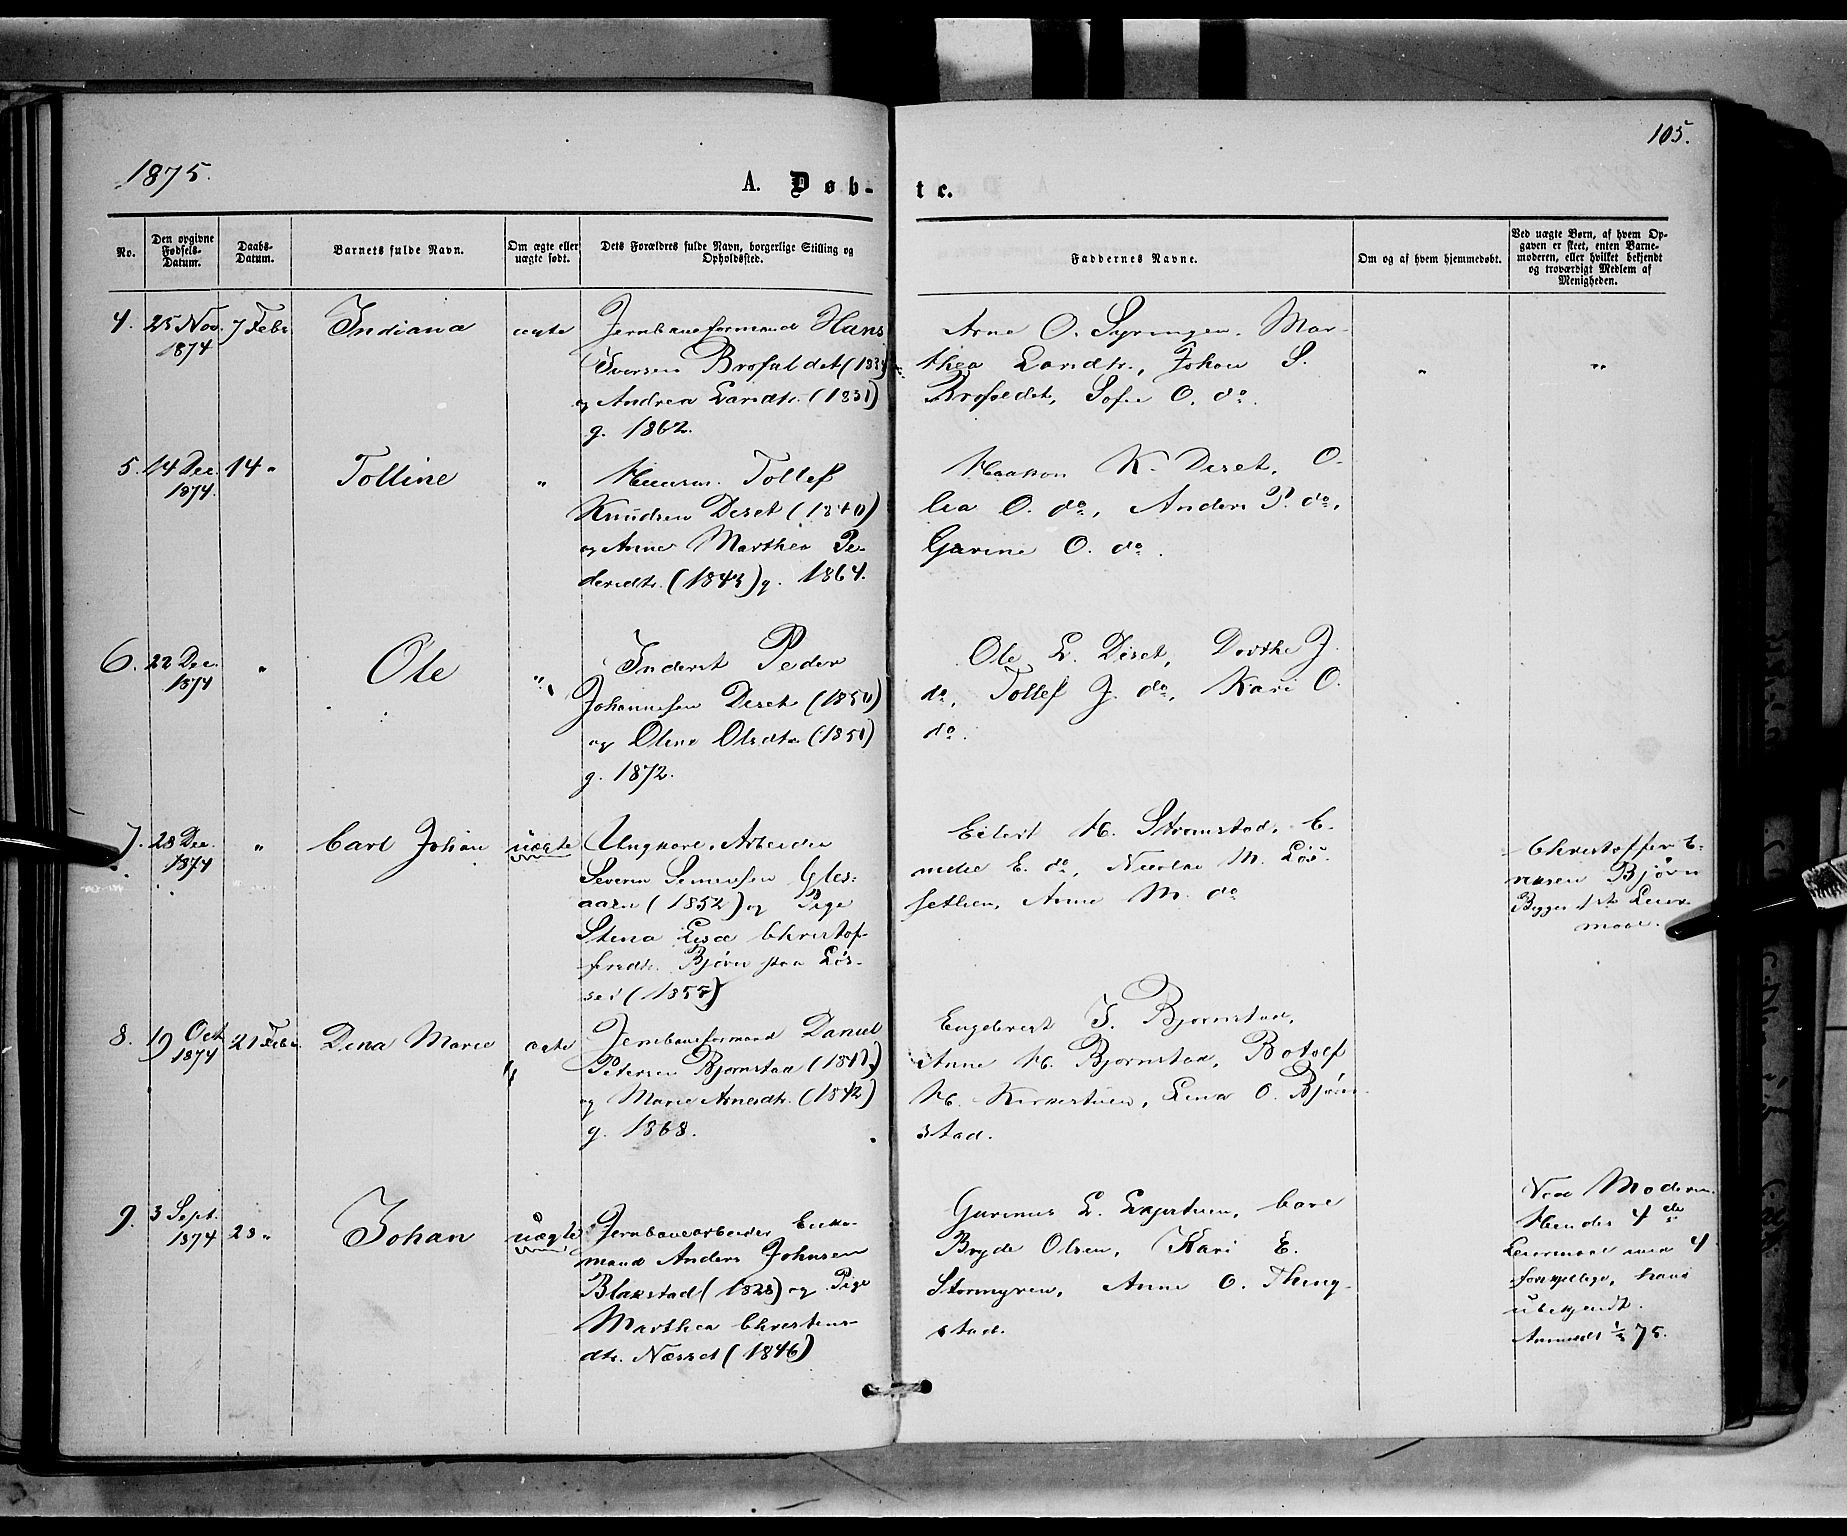 105.
1875.
A. Døb-
te.
No.
Den opgivne Fødsels-Datum.
Daabs-Datum.
Barnets fulde Navn.
Om ægte eller uægte født.
Dets Forældres fulde Navn, borgerlige Stilling og Opholdssted.
Faddernes Navne.
Om og af hvem hjemmedøbt.
Ved uægte Børn, af hvem Opgaven er skeet, enten Barnemoderen, eller hvilket bekjendt og troværdigt Medlem af Menigheden.
4. 25 Nov. 1874
7 Febr.
Indiana
ægte
Jernbaneformand Hans
Iversen Brofaldet
og Andrea Larsdtr. (1831)
g. 1862.
Arne O. Syringen, Mar-
thea Larsdtr., Johan S.
Brofoldet, Sofie O. do.
"
"
5. 14 Dec. 1874.
14 "
Tolline
"
Huusm. Tollef
Knudsen Diset (1840)
og Anne Marthea Pe-
dersdtr. (1843) g. 1864.
Haakon K. Diset, O-
lea O. do, Anders P. do,
Gurine O. do.
6. 22 Dec. 1874
"
Ole
"
Inderst Peder
Johannesen Diset (1850)
og Oline Olsdtr (1850)
g. 1872.
Ole L. Diset, Dorthe J.
do, Tollef J. do, Kari O.
do.
7. 28 Dec. 1874
"
Carl Johan
uægte
Ungkarl, Arbeider
Severin Simensen Gles-
aaen (1852) og Pige
Stina Lisa Christof-
fersdtr. Bjørn paa Løs-
set (1855)
Eilert H. Strømstad, E-
milie E. do, Nicolai M. Løs-
setlien, Anne M. do
Christoffer E-
riksen Bjørn
Begges 1ste Leier-
maal.
8. 19 Oct 1874
21 Febr.
Dina Marie
ægte
Jernbaneformand Daniel
Petersen Bjørnstad
og Marie Arnesdtr. (1842)
g. 1868.
Engebret I. Bjørnstad,
Anne H. Bjørnstad, Botolf
H. Kirkestuen, Lina O. Bjørn-
stad.
9. 3 Sept. 1874
28 "
Johan
uægte
Jernbanearbeider Enke-
mand Anders Johnsen
Blakstad (1828) og Pige
Marthea Christens-
dtr. Næsset (1846)
Gurinus L. Løpstuen, Carl
Bryde Olsen, Kari E.
Stormyren, Anne O. Thing-
stad.
Ved Moderen.
Hendes 4de
Leiermaal med 4
forskjellige, hans
ubekjendt.
Anmeldt 75.